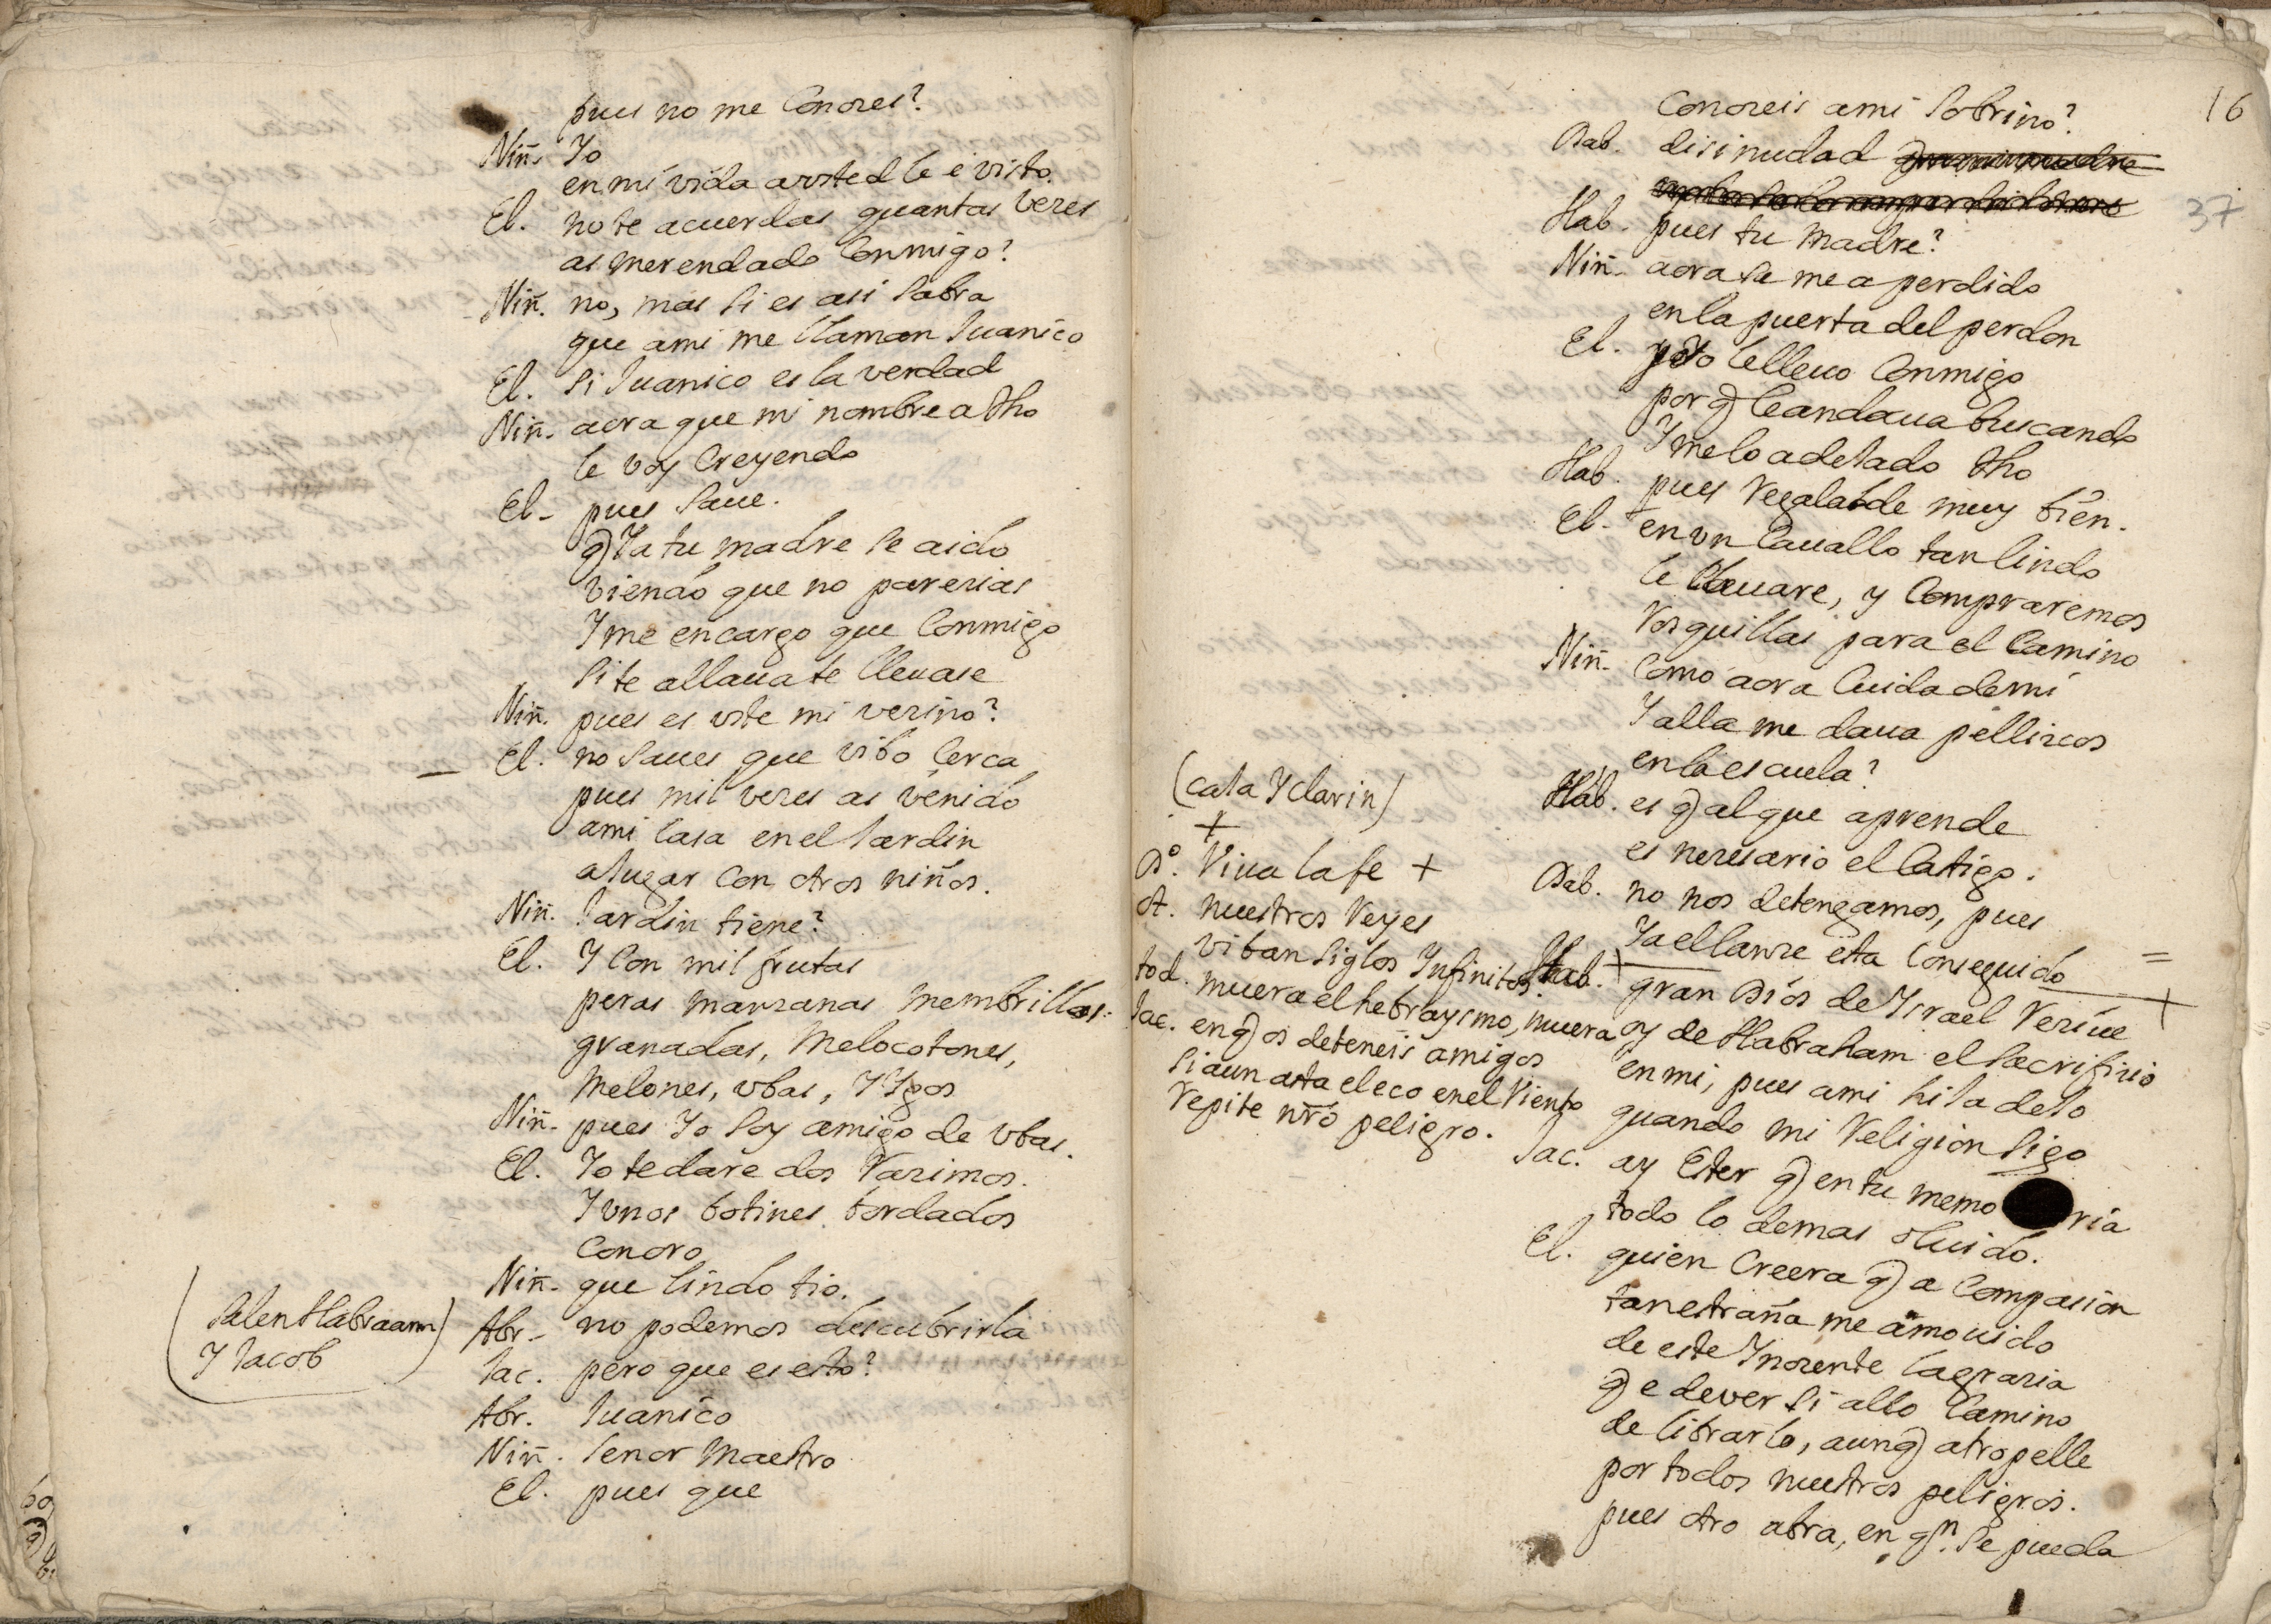 pues no me Conozes?
Niñ. Yo
en mi vida a vsted le e visto.
El. no te acuerdas quantas vezes
as merendado Conmigo?
Niñ. no, mas si es asi sabra
que ami me llaman Juanico
El. si Juanico es la verdad
Niñ. aora que mi nombre a dho
le voy Creyendo
El. pues saue.
q̃ Ya tu madre se a ido
viendo que no parezias
Y me encargo que Conmigo
si te allaua te lleuase
Niñ. pues es vste mi vezino?
El. no saues que vibo Cerca
pues mil vezes as venido
ami Casa en el Jardin
a Jugar Con otros niños.
Niñ. Jardin tiene?
El. Y Con mil frutas
peras manzanas membrillos
granadas, Melocotones,
Melones, vbas, Y Ygos
Niñ. pues Yo soy amigo de vbas.
El. Yo te dare dos Razimos.
Y vnos botines bordados
Con oro
Niñ. que lindo tio.
(Salen Habraam
Y Jacob)
Abr. no podemos descubrirla
Jac. pero que es esto?
Abr. Juanico
Niñ. Señor Maestro
El. pues que
16
37
Conozeis ami Sobrino?
Dab. disimudad
Hab. pues tu Madre?
Niñ. aora se me a perdido
en la puerta del perdon
El. Yo le lleuo Conmigo
por q̃ le andaua buscando
Y me lo a deJado dho
Hab. pues Regalalde muy bien.
El. en vn Cauallo tan lindo
le lleuare, y Compraremos
Rosquillas para el Camino
Niñ. Como aora Cuida de mi
Y alla me daua pellizcos
en la escuela?
Hab. es q̃ al que aprende
es nezesario el Castigo.
Dab. no nos detengamos, pues
Ya el lanze esta Conseguido
(caJa Y clarin)
+
Dº. Viua la fe +
ot. nuestros Reyes
viban siglos Infinitos
tod. muera el hebraysmo, muera
Jac. en q̃ os deteneis amigos
si aun asta el eco en el Viento
Repite nrõ peligro.
Hab. gran Dios de Ysrael Reziue
oy de Habraham el sacrifizio
en mi, pues ami hiJa deJo
quando mi Religion sigo
Jac. ay Ester q̃ en tu memo ria
todo lo demas oluido.
El. quien Creera q̃ a Compasion
tan estraña me a mouido
de este Ynozente la grazia
q̃ e de ver si allo Camino
de librarlo, aunq̃ atropelle
por todos nuestros peligros.
pues otro abra, en qn. se pueda